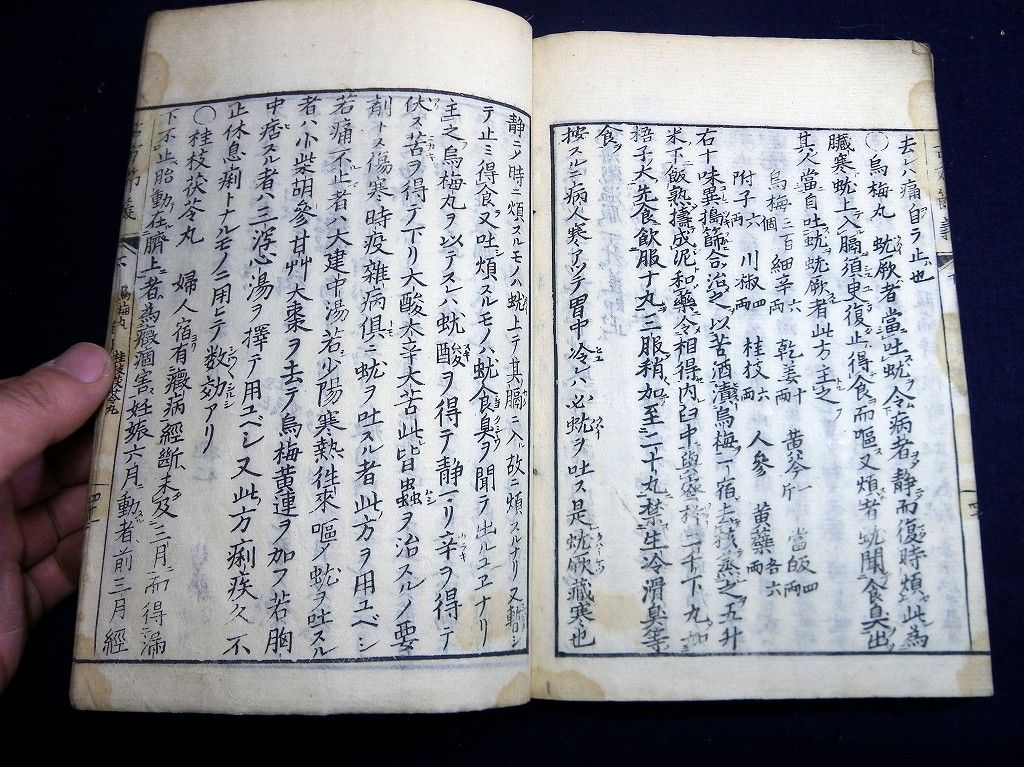 去ハ痛自ラ止也
〇烏梅丸 蚘厥者當吐蚘令病者静而復時煩此為
臓寒蚘上入膈須臾復止得食而嘔又煩者蚘聞食臭出
其人當自吐蚘蚘厥者此方主之
烏梅三百個 細辛六両 乾姜十両 黄芩一斤 當皈四両
附子六両 川椒四両 桂枝六両 人參 黄蘗各六両
右十味異搗篩合治之以苦酒漬烏梅一宿去核蒸之五升
米下飯熟擣成泥和薬令相得内臼中與蜜杵二千下丸如
梧子大先食飲服十丸三服稍加至二十丸禁生冷滑臭等
食
按スルニ病人寒アツテ胃中冷レハ必蚘ヲ吐ス是蚘厥藏寒也
静ニノ時ニ煩スルモノハ蚘上テ其膈ニ入故ニ煩スルナリ又暫シ
テ止ミ得食又吐煩スルモノハ蚘食臭ヲ聞テ出ルユヱナリ
主之烏梅丸ヲ以テスハ蚘酸ヲ得テ静マリ辛ヲ得テ
伏ス苦ヲ得テ下リ大酸大辛大苦此皆蟲ヲ治スルノ要
剤トス傷寒時疫雑病俱ニ蚘ヲ吐スル者此方ヲ用ユベシ
若痛不止者ハ大建中湯若少陽寒熱徃来嘔メ蚘ヲ吐スル
者ハ小柴胡參甘艸大棗ヲ去テ烏梅黄連ヲ加フ若胸
中痞スル者ハ三瀉心湯ヲ擇テ用ユベシ又此方痢疾久不
止休息痢トナルモノニ用ヒテ数効アリ
〇桂枝茯苓丸 婦人宿有癥病經斷未及三月而得漏
下不止胎動在臍上者為癥痼害妊娠六月動者前三月經
烏梅丸 桂枝茯苓丸